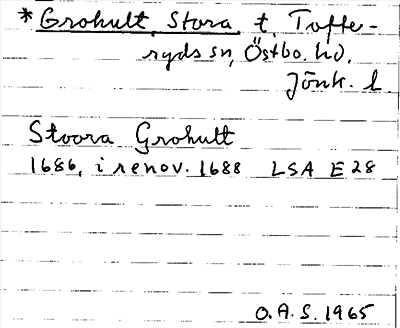 *Grohult, Stora, t. Toffe-
ryds sn, Östbo hd,
Jönk. l.
Stoora Grohult
1686, i renov. 1688 LSA E 28
O.A.S. 1965